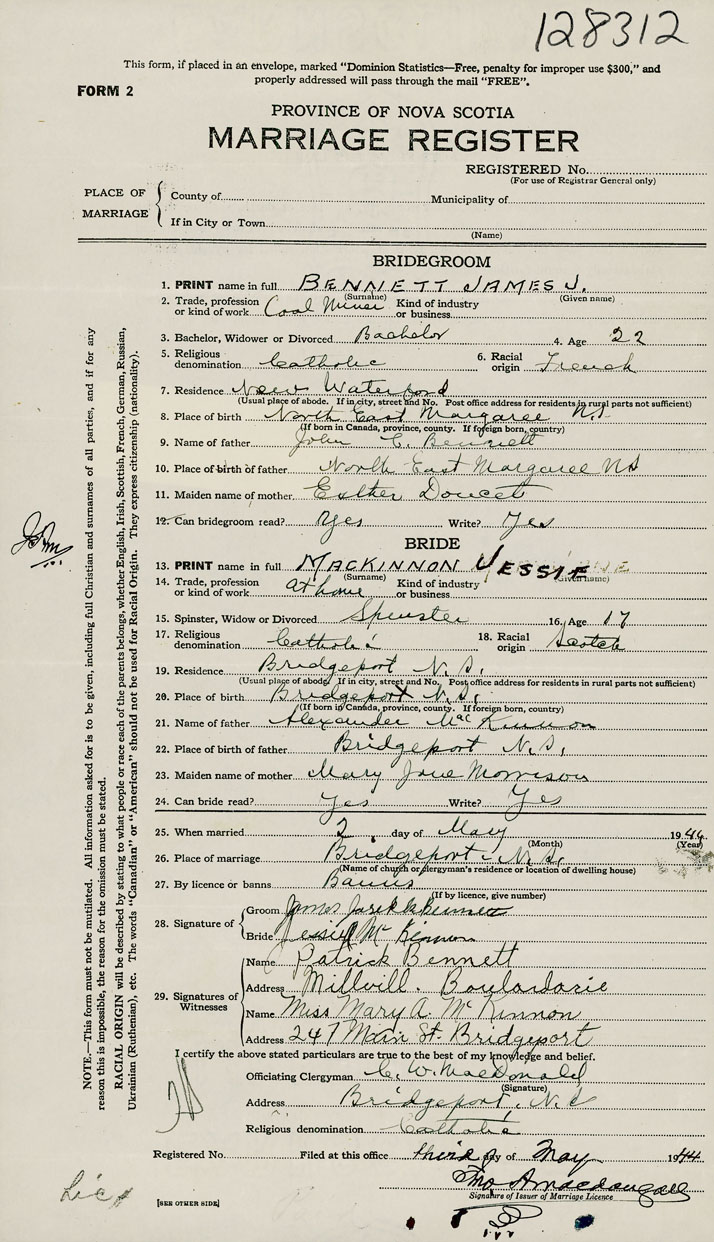 128312
This form, if placed in an envelope, marked "Dominion Statistics—Free, penalty for improper use $300," and
properly addressed will pass through the mail "FREE".
FORM 2
PROVINCE OF NOVA SCOTIA
MARRIAGE REGISTER
REGISTERED No.
(For use of Registrar General only)
PLACE OF MARRIAGE
County of Municipality of
If in City or Town
(Name)
BRIDEGROOM
1. PRINT name in full BENNETT JAMES J.
(Surname) (Given name)
2. Trade, profession or kind of work Coal Miner Kind of industry or business
3. Bachelor, Widower or Divorced Bachelor 4. Age 22
5. Religious denomination Catholic 6. Racial origin French
7. Residence New Waterford
(Usual place of abode. If in city, street and No. Post office address for residents in rural parts not sufficient)
8. Place of birth North East Margaree N.S.
(If born in Canada, province, county. If foreign born, country)
9. Name of father John C. Bennett
10. Place of birth of father North East Margaree NS
11. Maiden name of mother Esther Doucet
12. Can bridegroom read? Yes Write? Yes
BRIDE
13. PRINT name in full MACKINNON JESSIE
(Surname) (Given name)
14. Trade, profession or kind of work at home Kind of industry or business
15. Spinster, Widow or Divorced Spinster 16. Age 17
17. Religious denomination Catholic 18. Racial origin Scotch
19. Residence Bridgeport N.S.
(Usual place of abode. If in city, street and No. Post office address for residents in rural parts not sufficient)
20. Place of birth Bridgeport N.S.
(If born in Canada, province, county. If foreign born, country)
21. Name of father Alexander MacKinnon
22. Place of birth of father Bridgeport N.S.
23. Maiden name of mother Mary Jane Morrison
24. Can bride read? Yes Write? Yes
25. When married 2 day of May 1944
(Month) (Year)
26. Place of marriage Bridgeport N.S.
(Name of church or clergyman's residence or location of dwelling house)
27. By licence or banns Banns
(If by licence, give number)
28. Signature of
Groom James Bennett
Bride Jessie McKinnon
29. Signatures of Witnesses
Name Patrick Bennett
Address Millvill. Boulardarie
Name Miss Mary A. McKinnon
Address 247 Main St. Bridgeport
I certify the above stated particulars are true to the best of my knowledge and belief.
Officiating Clergyman C. W. MacDonald
(Signature)
Address Bridgeport, N.S
Religious denomination Catholic
Registered No. Filed at this office third day of May 1944
Signature of Issuer of Marriage Licence
[SEE OTHER SIDE]
Lic
NOTE.—This form must not be mutilated. All information asked for is to be given, including full Christian and surnames of all parties, and if for any
reason this is impossible, the reason for the omission must be stated.
RACIAL ORIGIN will be described by stating to what people or race each of the parents belongs, whether English, Irish, Scottish, French, German, Russian,
Ukrainian (Ruthenian), etc. The words "Canadian" or "American" should not be used for Racial Origin. They express citizenship (nationality).